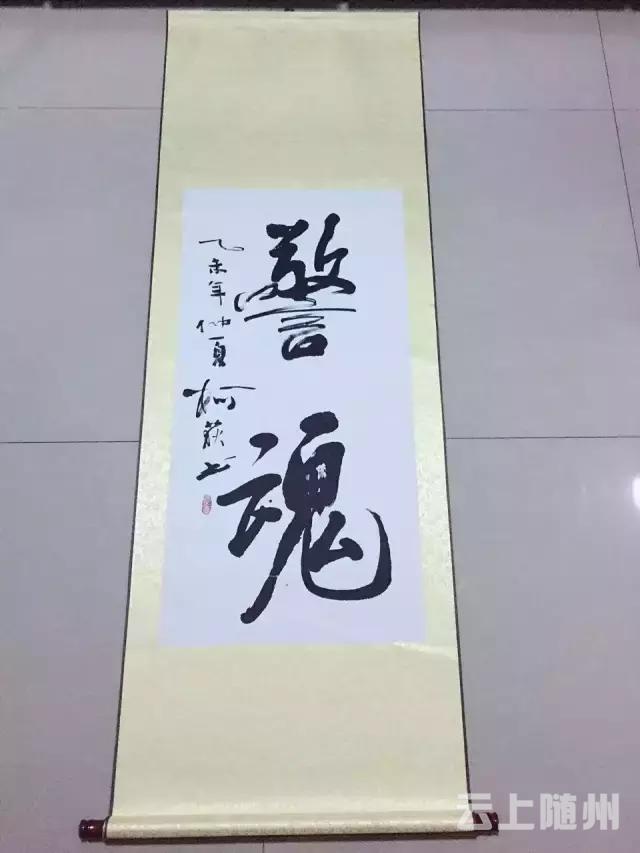 警魂
乙未年仲夏
柯荻书
云上随州